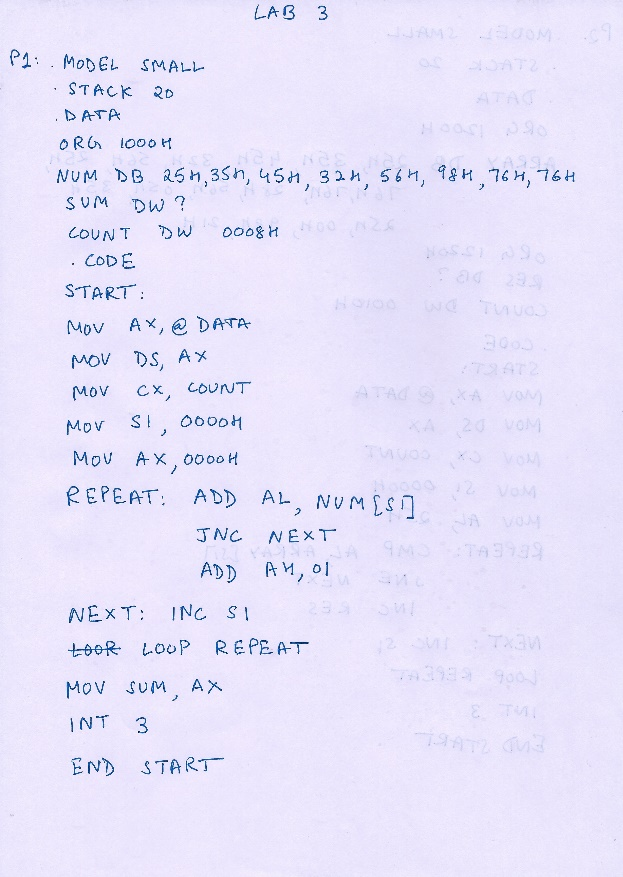 LAB 3
P1: . MODEL SMALL
. STACK 20
. DATA
ORG 1000H
NUM DB 25H,35H,45H,32H,56H,98H,76H,76H
SUM DW ?
COUNT DW 0008H
. CODE
START:
MOV AX, @ DATA
MOV DS, AX
MOV CX, COUNT
MOV SI, 0000H
MOV AX, 0000H
REPEAT: ADD AL, NUM[SI]
JNC NEXT
ADD AH, 01
NEXT: INC SI
LOOP REPEAT
MOV SUM, AX
INT 3
END START